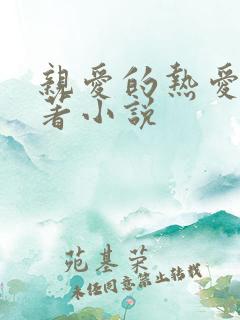 親愛的熱愛
著小説
苑基荣
未经同意禁止转载